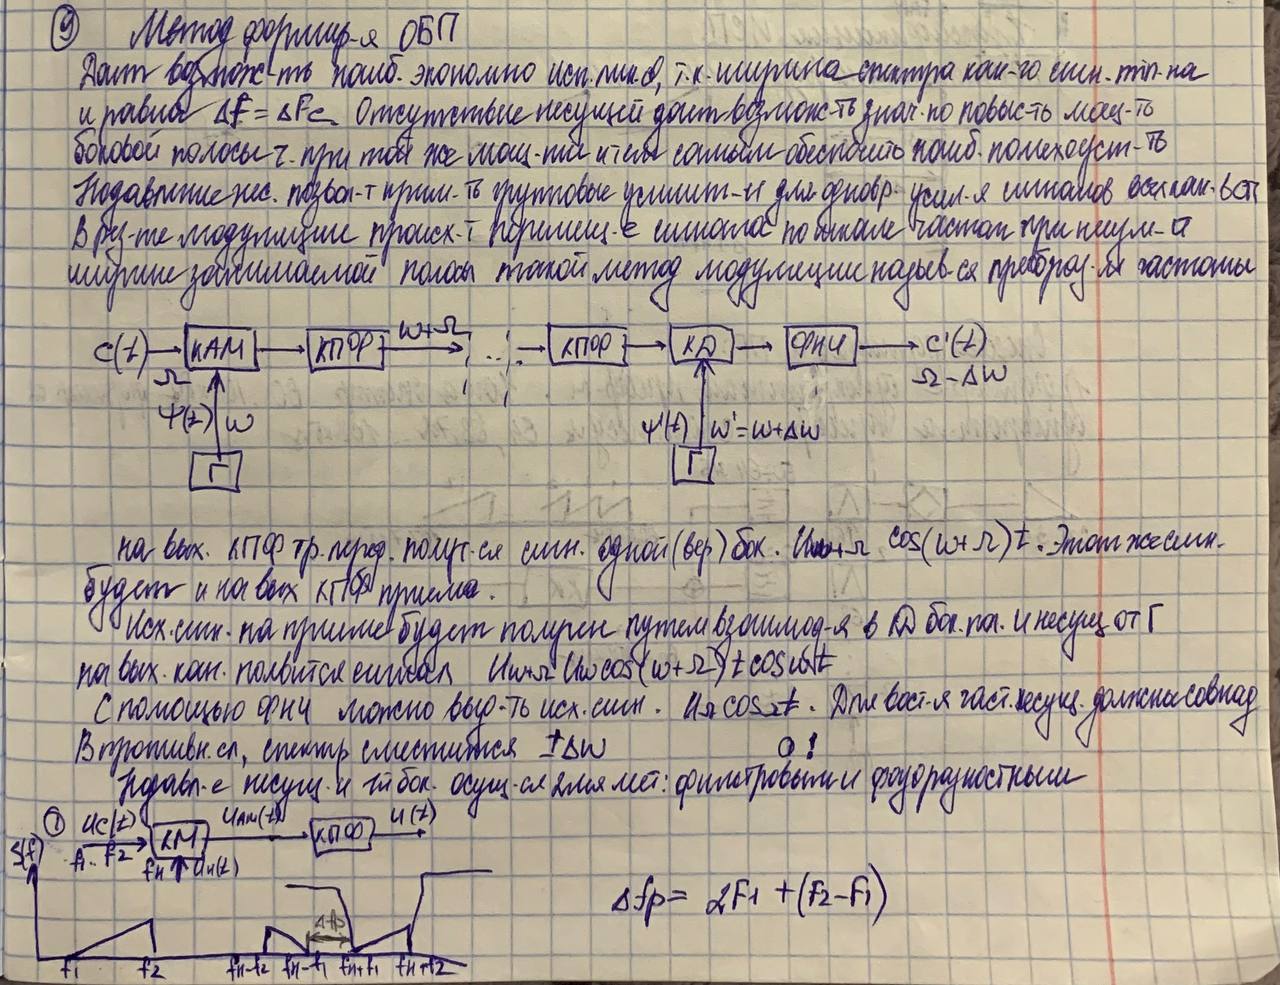 9 Метод формир-я ОБП
Дает возмож-ть наиб. экономно исп. лин. , т.к. ширина спектра кан-го сигн. min-на
и равна Δf = ΔFc. Отсутствие несущей дает возмож-ть знач-но повыс-ть мощ-ть
боковой полосы ч. при той же мощ-ти и тем самым обеспечить наиб. помехоуст-ть
Подавление нес. позвол-т прим-ть групповые усилит-и для одновр. усил-я сигналов всех кан-в СП
В рез-те модуляции происх-т перемещ-е сигнала по шкале частот при неизм-й
ширине занимаемой полосы такой метод модуляции назыв-ся преобраз-ем частоты
C(t) КАМ КПФ ω+Ω КПФ КД ФНЧ C'(t)
Ω Ω-Δω
Ψ(t) ω Ψ'(t) ω'=ω+Δω
Г Г
на вых. КПФ тр. перед. получ-ся сигн. одной (вер) бок. Uω+Ω cos(ω+Ω)t. Этот же сигн.
будет и на вых КПФ приема.
Исх. сигн. на приеме будет получен путем взаимод-я в КД бок. пол. и несущ от Г
на вых. кан. появится сигнал Uω+Ω Uω cos(ω+Ω)t cosωt
С помощью ФНЧ можно выд-ть исх. сигн. UΩ cosΩt. Для вост-я част. несущ. должны совпад
В противн. сл, спектр сместится ±Δω О!
Подавл-е несущ. и бок. осущ-ся 2мя мет: фильтровым и фазоразностным
1 Uc(t) КМ UАМ(t) КПФ U(t)
f1..f2 fн Uн(t)
S(f)
Δfр= 2F1 + (F2-F1)
Δfр
f1 f2 fн-f2 fн-f1 fн+f1 fн+f2